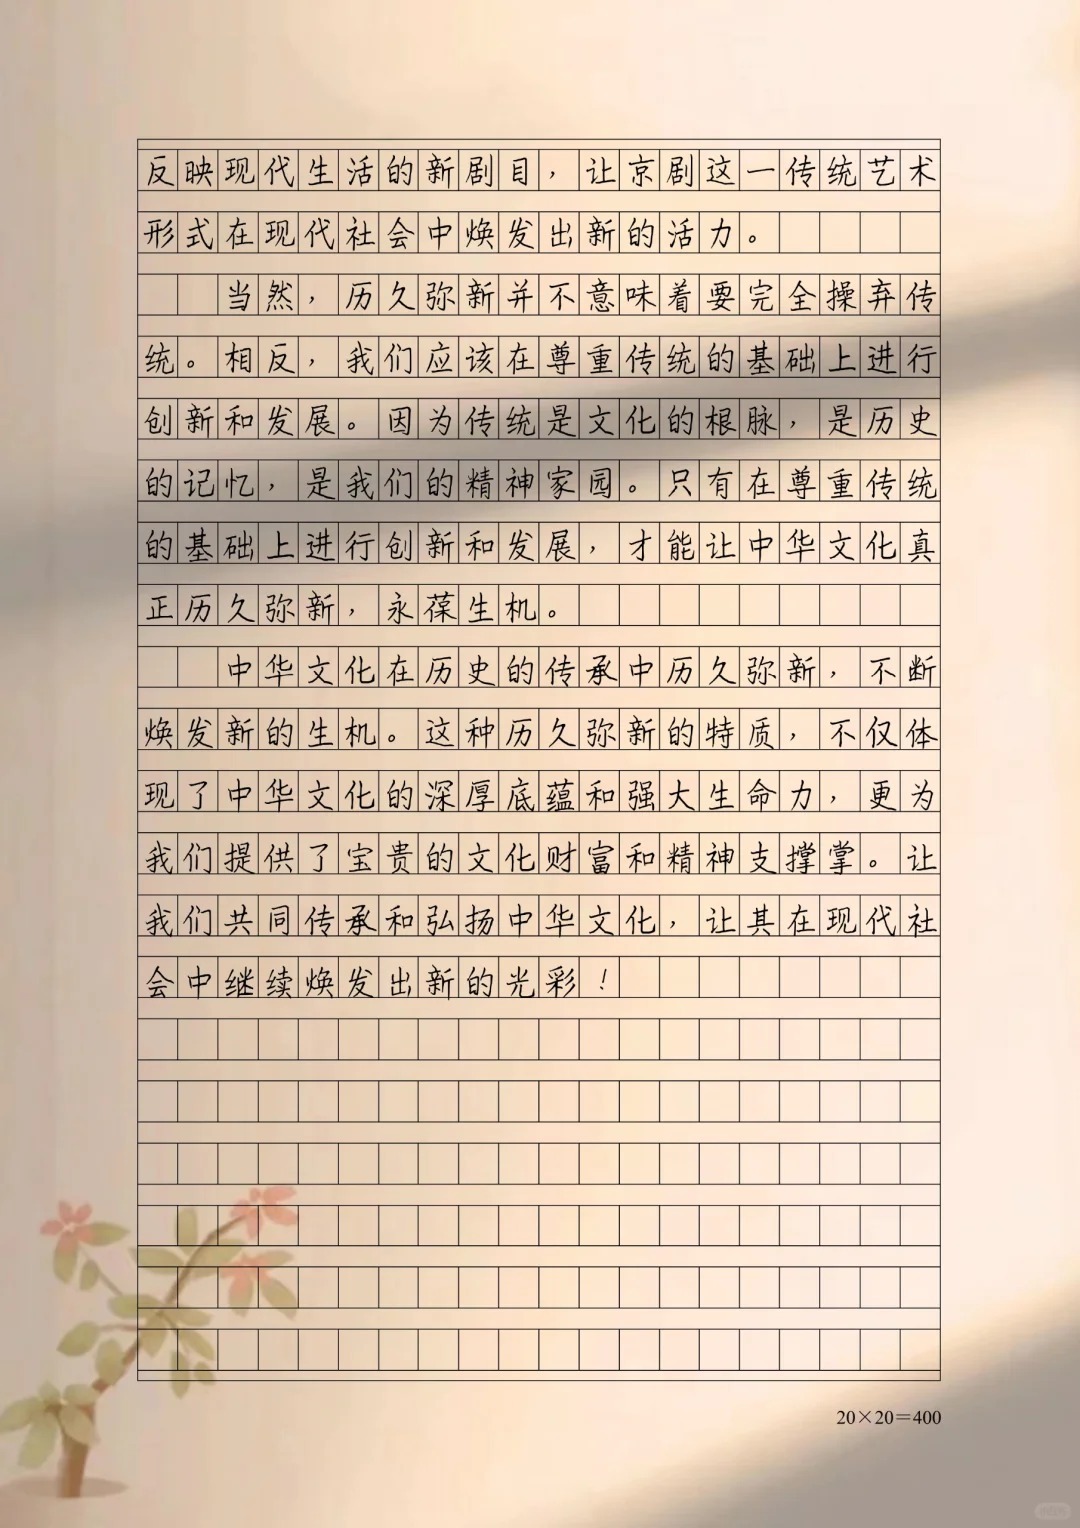 反映现代生活的新剧目，让京剧这一传统艺术
形式在现代社会中焕发出新的活力。
当然，历久弥新并不意味着要完全操弃传
统。相反，我们应该在尊重传统的基础上进行
创新和发展。因为传统是文化的根脉，是历史
的记忆，是我们的精神家园。只有在尊重传统
的基础上进行创新和发展，才能让中华文化真
正历久弥新，永葆生机。
中华文化在历史的传承中历久弥新，不断
焕发新的生机。这种历久弥新的特质，不仅体
现了中华文化的深厚底蕴和强大生命力，更为
我们提供了宝贵的文化财富和精神支撑掌。让
我们共同传承和弘扬中华文化，让其在现代社
会中继续焕发出新的光彩！
20×20=400